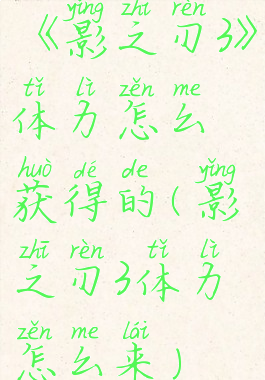 yǐng zhī rèn
《影之刃3》
tǐ lì zěn me
体力怎么
huò dé de yǐng
获得的(影
zhī rèn tǐ lì
之刃3体力
zěn me lái
怎么来)